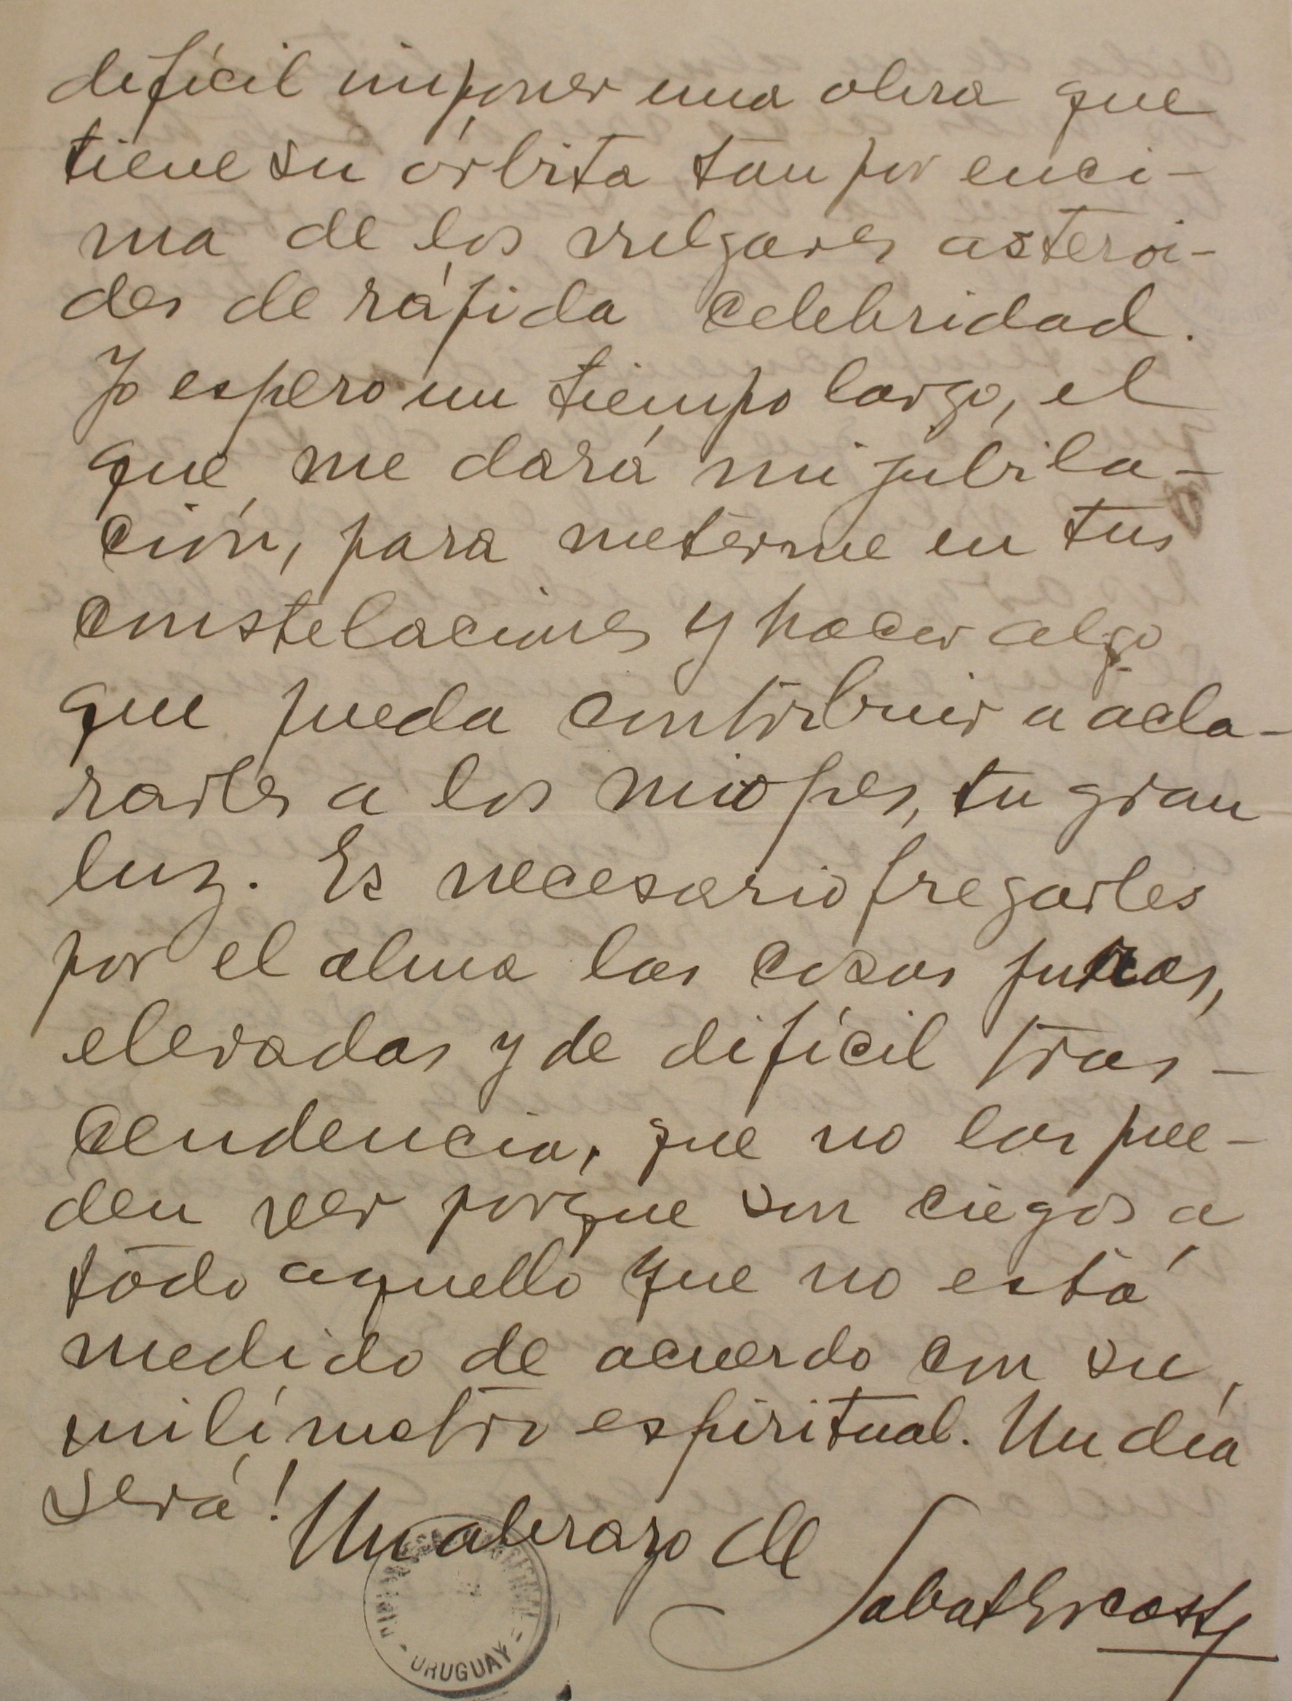 difícil imponer una obra que
tiene su órbita tan por enci-
ma de los vulgares asteroi-
des de rápida celebridad.
Yo espero un tiempo largo, el
que me dará mi jubila-
ción, para meterme en tus
constelaciones y hacer algo
que pueda contribuir a acla-
rarles a los miopes, tu gran
luz. Es necesario fregarles
por el alma las cosas puras,
elevadas y de difícil tras-
cendencia, que no las pue-
den ver porque son ciegos a
todo aquello que no está
medido de acuerdo con su
milímetro espiritual. Un día
será!
Un abrazo de
Sabat Ercasty
URUGUAY